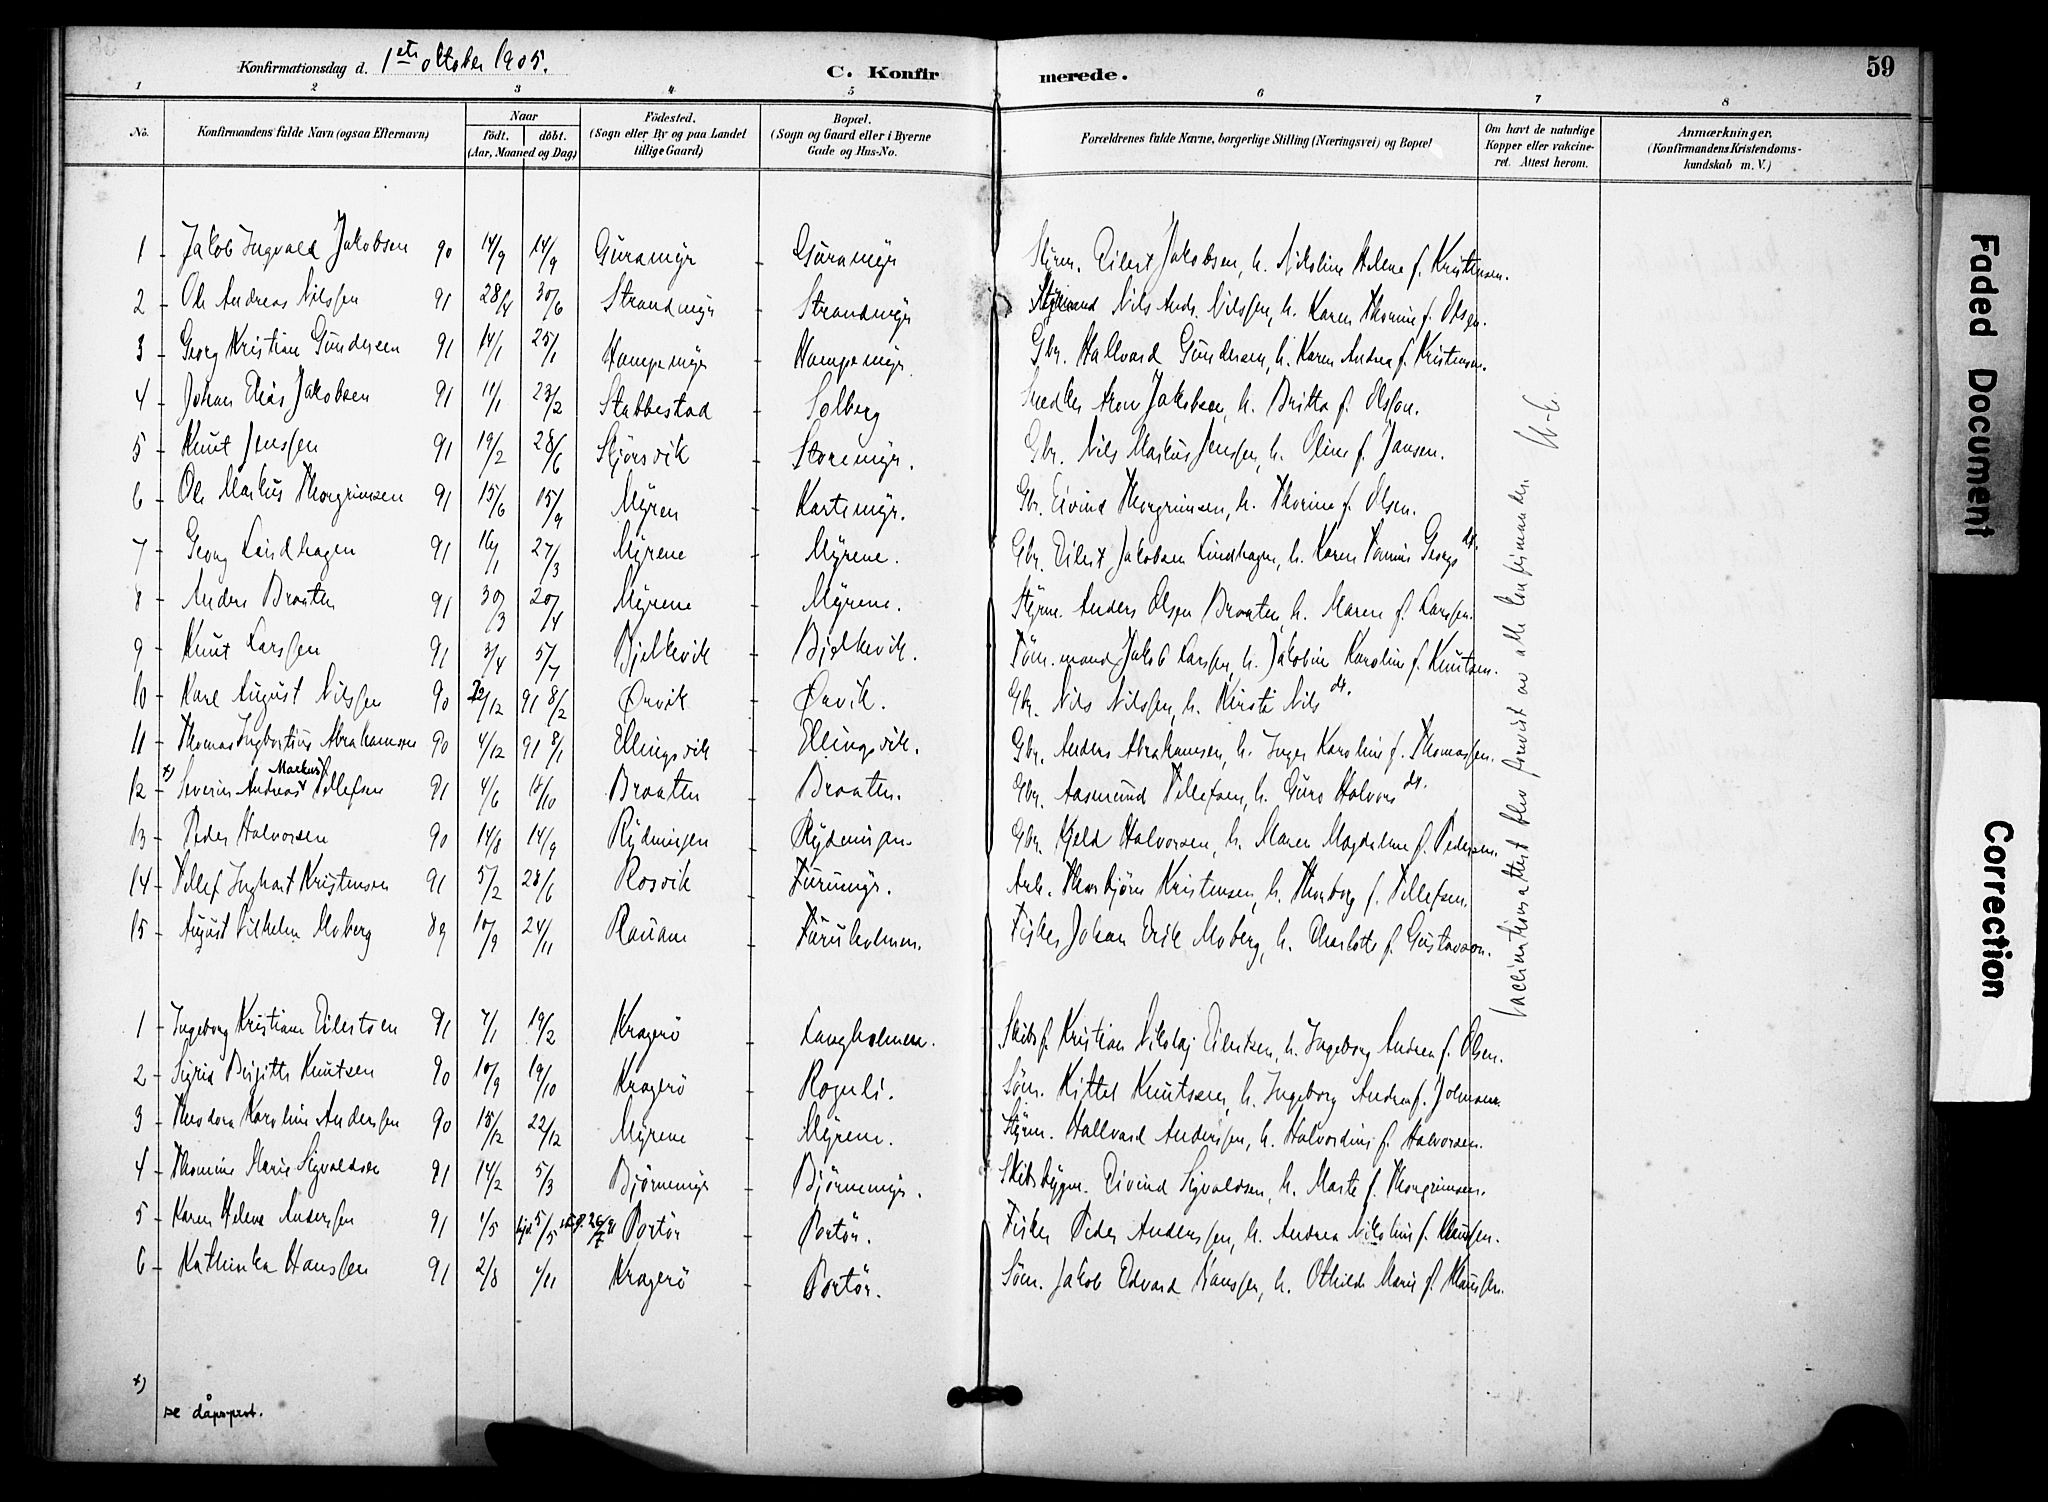 Konfirmationsdag d. 1ste oktober 1905.
C. Konfirmerede.
59
1 2 3 4 5 6 7 8
No.
Konfirmandens fulde Navn (ogsaa Efternavn)
Naar
födt. döbt.
(Aar, Maaned og Dag)
Födested.
(Sogn eller By og paa Landet
tillige Gaard)
Bopæl.
(Sogn og Gaard eller i Byerne
Gade og Hus-No.
Forældrenes fulde Navne, borgerlige Stilling (Næringsvei) og Bopæl
Om havt de naturlige
Kopper eller vakcine-
ret. Attest herom.
Anmærkninger.
(Konfirmandens Kristendoms-
kundskab m. V.)
1 - Jakob Ingvald Jakobsen 90 14/9 14/9 Guramyr - Guramyr Styrm. Eilert Jakobsen, h. Nikoline Helene f. Kristensen.
2 - Ole Andreas Nilssen 91 28/4 30/6 Strandmyr - Strandmyr Styrmand Nils Andr. Nilssen, h. Karen Thomine f. Olsen.
3 - Georg Kristian Gundersen 91 14/1 25/1 Hampemyr - Hampemyr Gbr. Hallvard Gundersen, h. Karen Andrea f. Kristensen.
4 - Johan Elias Jakobsen 91 11/1 23/2 Stabbestad - Solberg Snedker Aron Jakobsen, h. Britta f. Olsson.
5 - Knut Jenssen 91 19/2 28/6 Skjörsvik - Storemyr. Gbr. Nils Markus Jenssen, h. Oline f. Jansen.
6 - Ole Markus Thorgrimsen 91 15/6 15/9 Myren - Kartemyr. Gbr. Eivind Thorgrimsen, h. Thorine f. Olsen.
7 - Georg Lindhagen 91 16/1 27/3 Myrene - Myrene. Gbr. Eilert Jakobsen Lindhagen, h. Karen Tomine Georgs dt.
8 - Anders Braaten 91 30/3 20/4 Myrene - Myrene. Styrm. Anders Olsen Braaten, h. Maren f. Larssen.
9 - Knut Larssen 91 3/4 5/7 Bjelkevik - Bjelkevik. Töm.mand Jakob Larssen, h. Jakobine Karoline f. Knutsen.
10 - Karl August Nilssen 90 22/12 91 8/2 Ørvik - Ørvik. Gbr. Nils Nilssen, h. Kirsti Nils dt.
11 - Thomas Ingbertius Abrahamsen 90 4/12 91 8/1 Ellingsvik - Ellingsvik. Gbr. Anders Abrahamsen, h. Inger Karoline f. Thomassen.
x) Markus
12 - Severin Andreas Tellefsen 91 4/6 18/10 Braaten - Braaten. Gbr. Aasmund Tellefsen, h. Guro Halvors dt.
13 - Peder Halvorsen 90 14/8 14/9 Rydningen - Rydningen. Gbr. Kjeld Halvorsen, h. Maren Magdalene f. Pedersen.
14 - Tellef Inghart Kristensen 91 5/2 28/6 Rosvik - Furumyr. Arb. Thorbjörn Kristensen, h. Thorborg f. Tellefsen.
15 - August Vilhelm Moberg 89 10/9 24/11 Rauane - Furuholmen. Fisker Johan Erik Moberg, h. Charlotte f. Gustavson.
1 - Ingeborg Kristiane Eilertsen 91 7/1 19/2 Kragerö - Langholmen. Skibsf. Kristian Nikolaj Eilertsen, h. Ingeborg Andrea f. Olsen.
2 - Sigrid Birgitte Knutsen 90 10/9 19/10 Kragerö - Rognli. Söm. Kittel Knutsen, h. Ingeborg Andrea f. Johnsen.
3 - Theodora Karoline Anderssen 90 15/12 22/12 Myrene - Myrene. Styrm. Hallvard Anderssen, h. Halvordine f. Halvorsen.
4 - Thomine Marie Sigvaldsen 91 14/2 5/3 Bjørnemyr - Bjørnemyr. Skibsbygm. Eivind Sigvaldsen, h. Marte f. Thorgrimsen.
5 - Karen Helene Anderssen 91 1/5 hjd. 5/5 Portör - Portör. Fisker Peder Anderssen, h. Andrea Nikoline f. Klaussen.
6 - Kathinka Hanssen 91 2/8 1/11 Kragerö - Portör. Söm. Jakob Edvard Hanssen, h. Othilde Marie f. Klaussen.
Vaccinationsattest blev forevist av alle konfirmander.
x)
se dåpsprot.
Faded Document
Correction